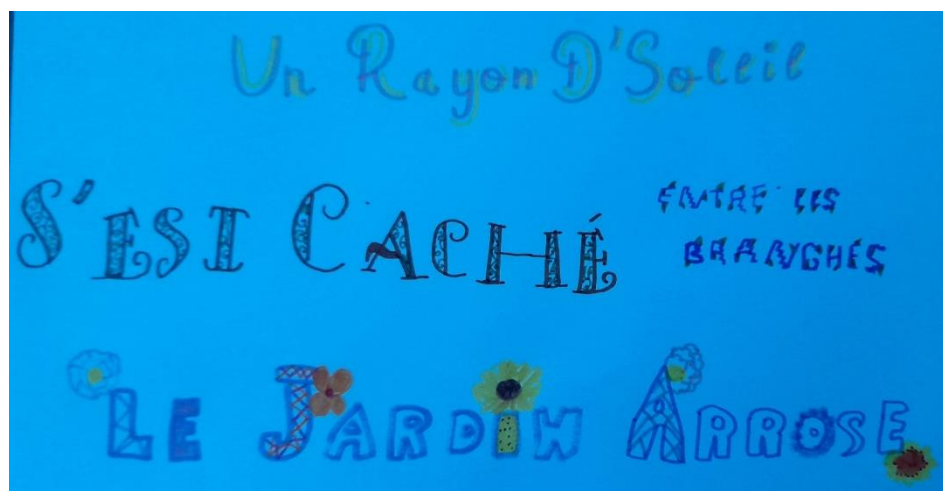 Un Rayon D'Soleil
S'EST CACHÉ ENTRE LES
BRANCHES
LE JARDIN ARROSE